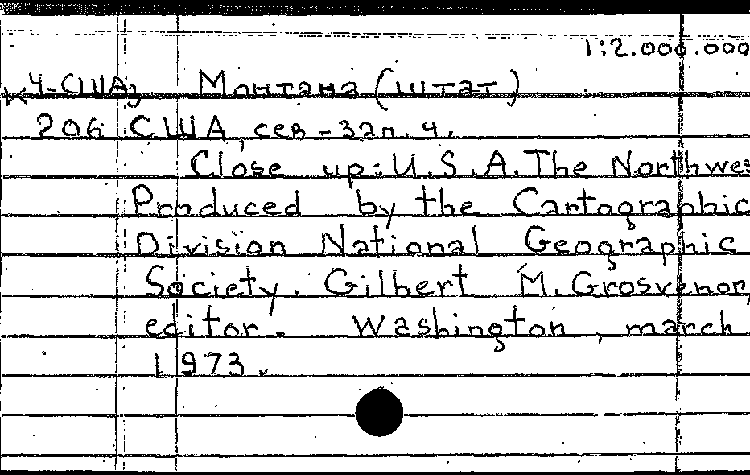 1:2.000.000
К4-США; Монтана (штат)
206 США, сев-зап. ч.
Close up: U.S.A. The Northwes
Produced by the Cartographic
Division National Geographic
Society. Gilbert M. Grosvenor,
editor. Washington, march
1973.